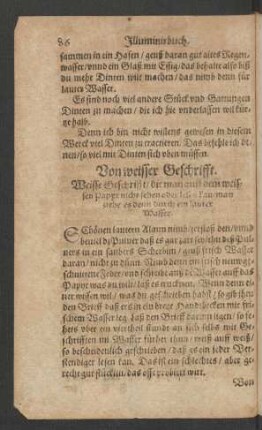 86 Illuminirbuch.
sammen in ein Hafen / geuß daran gut altes Regen-
wasser / vnnd ein Glaß mit Essig / das behalte also biß
du mehr Dinten wilt machen / das newb denn für
lauter Wasser.
Es sind noch viel andere Stück vnd Gattungen
Dinten zu machen / die ich hie vnderlassen wil kür-
tze halb.
Denn ich bin nicht willens gewesen in diesem
Werck viel Dinten zu tractieren. Das befehle ich de-
nen / so viel mit Dinten sich vben müssen.
Von weisser Geschrifft.
Weisse Geschrifft / die man auff dem weis-
sen Papyr nicht sehen oder lesen kan man
ziehe es denn durch ein lauter
Wasser.
SChönen lautern Alaun nimb zerstoß den /
Pulver daß es gar zart
in ein saubers Scherblin / geuß frisch Wasser
daran / nicht zu dünn. Nimb denn ein new
geschnittene Feder / vnd schreibe mit dem Wasser auff das
Papir was du wilt / laß es trucknen. Wenn denn ei-
ner wissen wil / was du geschrieben habest / so
den Brieff daß er in ein breit Handbecken mit fri-
schem Wasser leg / laß den Brieff darinn ligen / so
hets vber ein viertheil stunde an sich selbs mit Ge-
schrifften im Wasser härfür thun / weiß auff weiß /
so bescheidenlich geschrieben / daß es ein jeder Ver-
stendiger lesen kan. Das ist ein schlechtes / aber ge-
recht gut stücklin / das offt probirt wirt.
Von